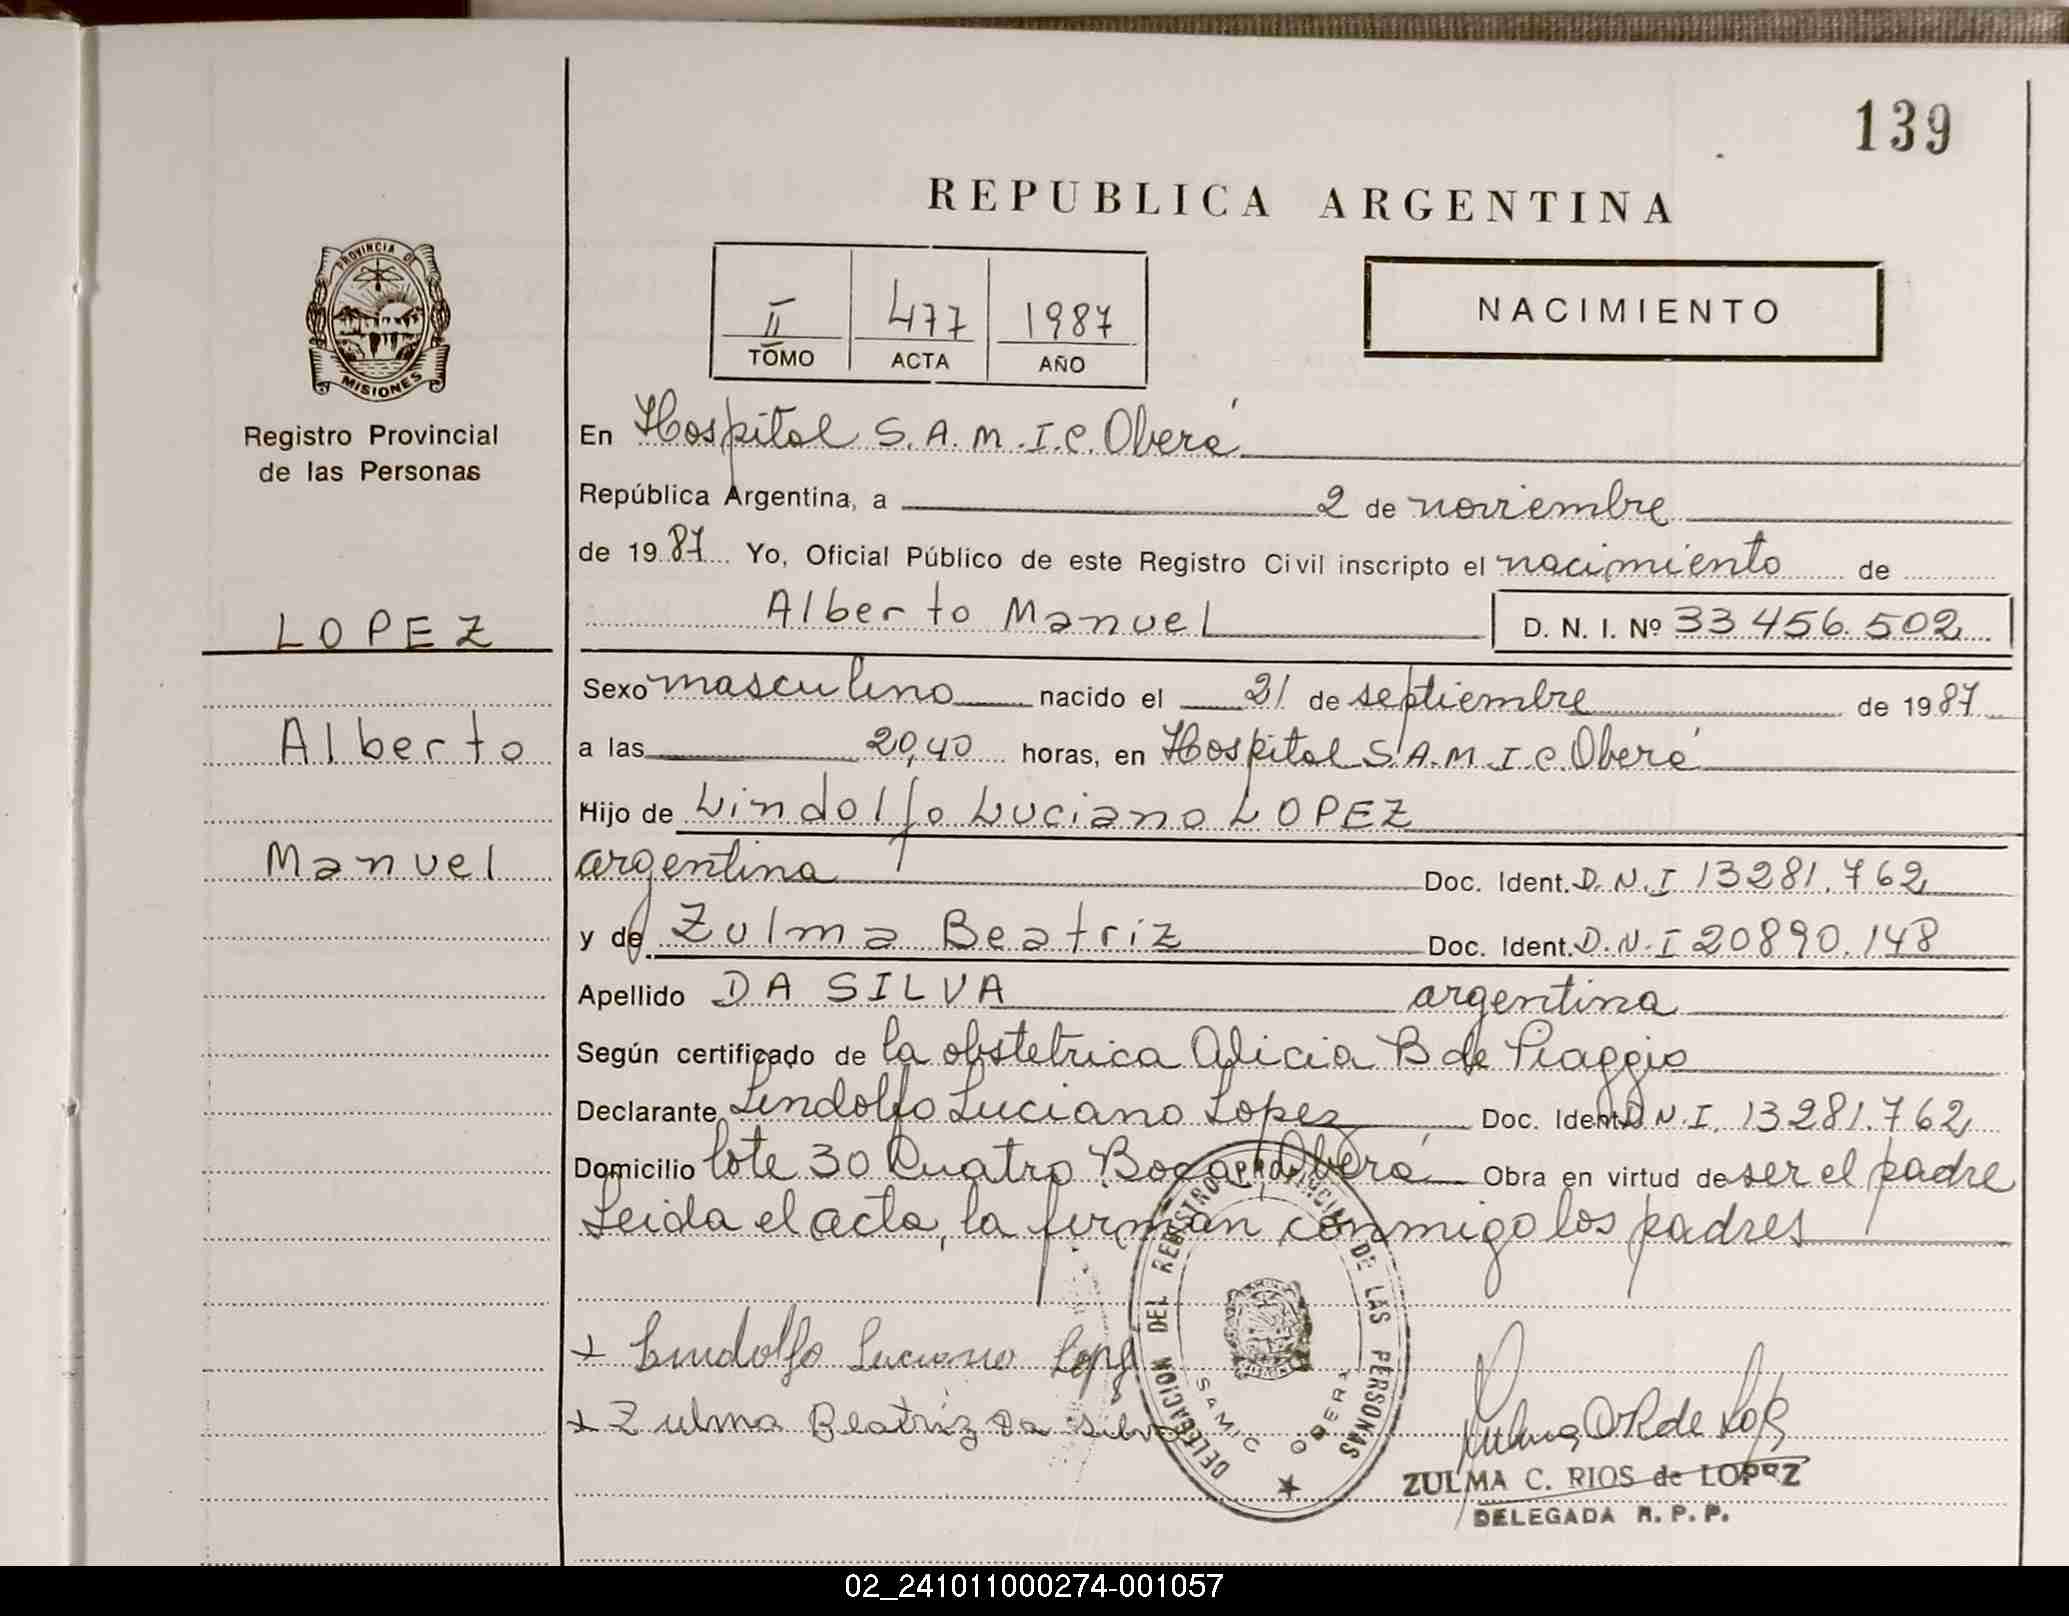 139
REPUBLICA ARGENTINA
PROVINCIA DE
MISIONES
Registro Provincial
de las Personas
II 477 1987
TOMO ACTA AÑO
NACIMIENTO
En Hospital S.A.M.I.C. Oberá
República Argentina, a 2 de noviembre
de 1987 Yo, Oficial Público de este Registro Civil inscripto el nacimiento de
LOPEZ
Alberto Manuel D. N. I. Nº 33456.502
Sexo masculino nacido el 21 de septiembre de 1987
Alberto
a las 20,40 horas, en Hospital S.A.M.I.C. Oberá
Hijo de Lindolfo Luciano LOPEZ
Manuel
argentina Doc. Ident. D.N.I 13281.762
y de Zulma Beatriz Doc. Ident. D.N.I 20890.148
Apellido DA SILVA argentina
Según certificado de la obstetrica Alicia B de Piaggio
Declarante Lindolfo Luciano Lopez Doc. Ident. D.N.I. 13281.762
Domicilio lote 30 Cuatro Bocas, Oberá Obra en virtud de ser el padre
Leida el acta, la firman conmigo los padres
DELEGACION DEL REGISTRO PROVINCIAL DE LAS PERSONAS
SAMIC OBERA
+ Lindolfo Luciano Lopez
+ Zulma Beatriz Da Silva
ZULMA C. RIOS de LOPEZ
DELEGADA R. P. P.
02_241011000274-001057